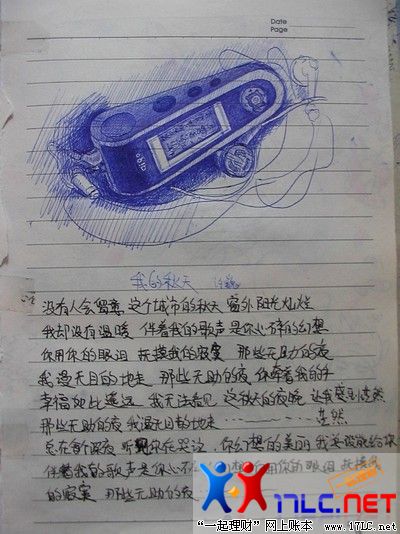 Date
Page
我的秋天 许巍
没有人会留意 这个城市的秋天 窗外阳光灿烂
我却没有温暖 伴着我的歌声 是你心碎的幻想
你用你的眼泪 抚摸我的寂寞 那些无助的夜
我漫无目的地走 那些无助的夜 你牵着我的手
幸福如此遥远 我无法看见 这秋天的夜晚 让我感到茫然
那些无助的夜 我漫无目的地走 茫然
总在每个深夜 听见你在哭泣 你幻想的美丽 我是没能给你
伴着我的歌声 是你心 幻想 用你的眼泪 抚摸我
的寂寞 那些无助的夜
17LC.NET
“一起理财”网上账本 www.17LC.net